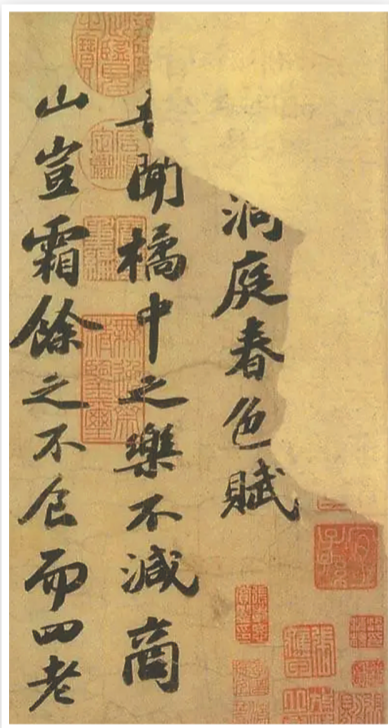 洞庭春色賦
聞橘中之樂不減商
山豈霜餘之不食而四老